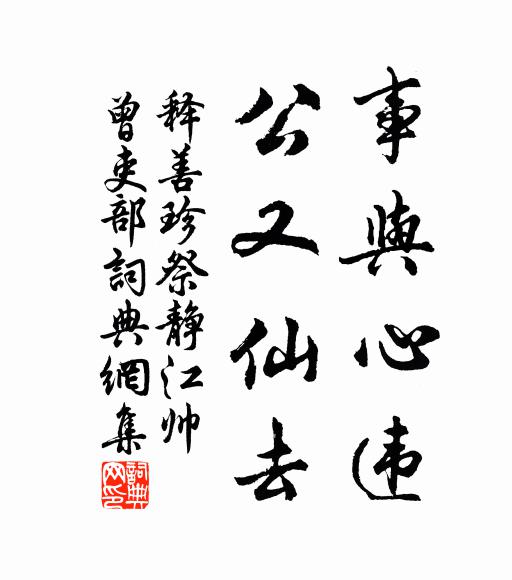 事與心违
公又仙去
释善珍祭静江帅
曾吏部詞典網集
詞典网印